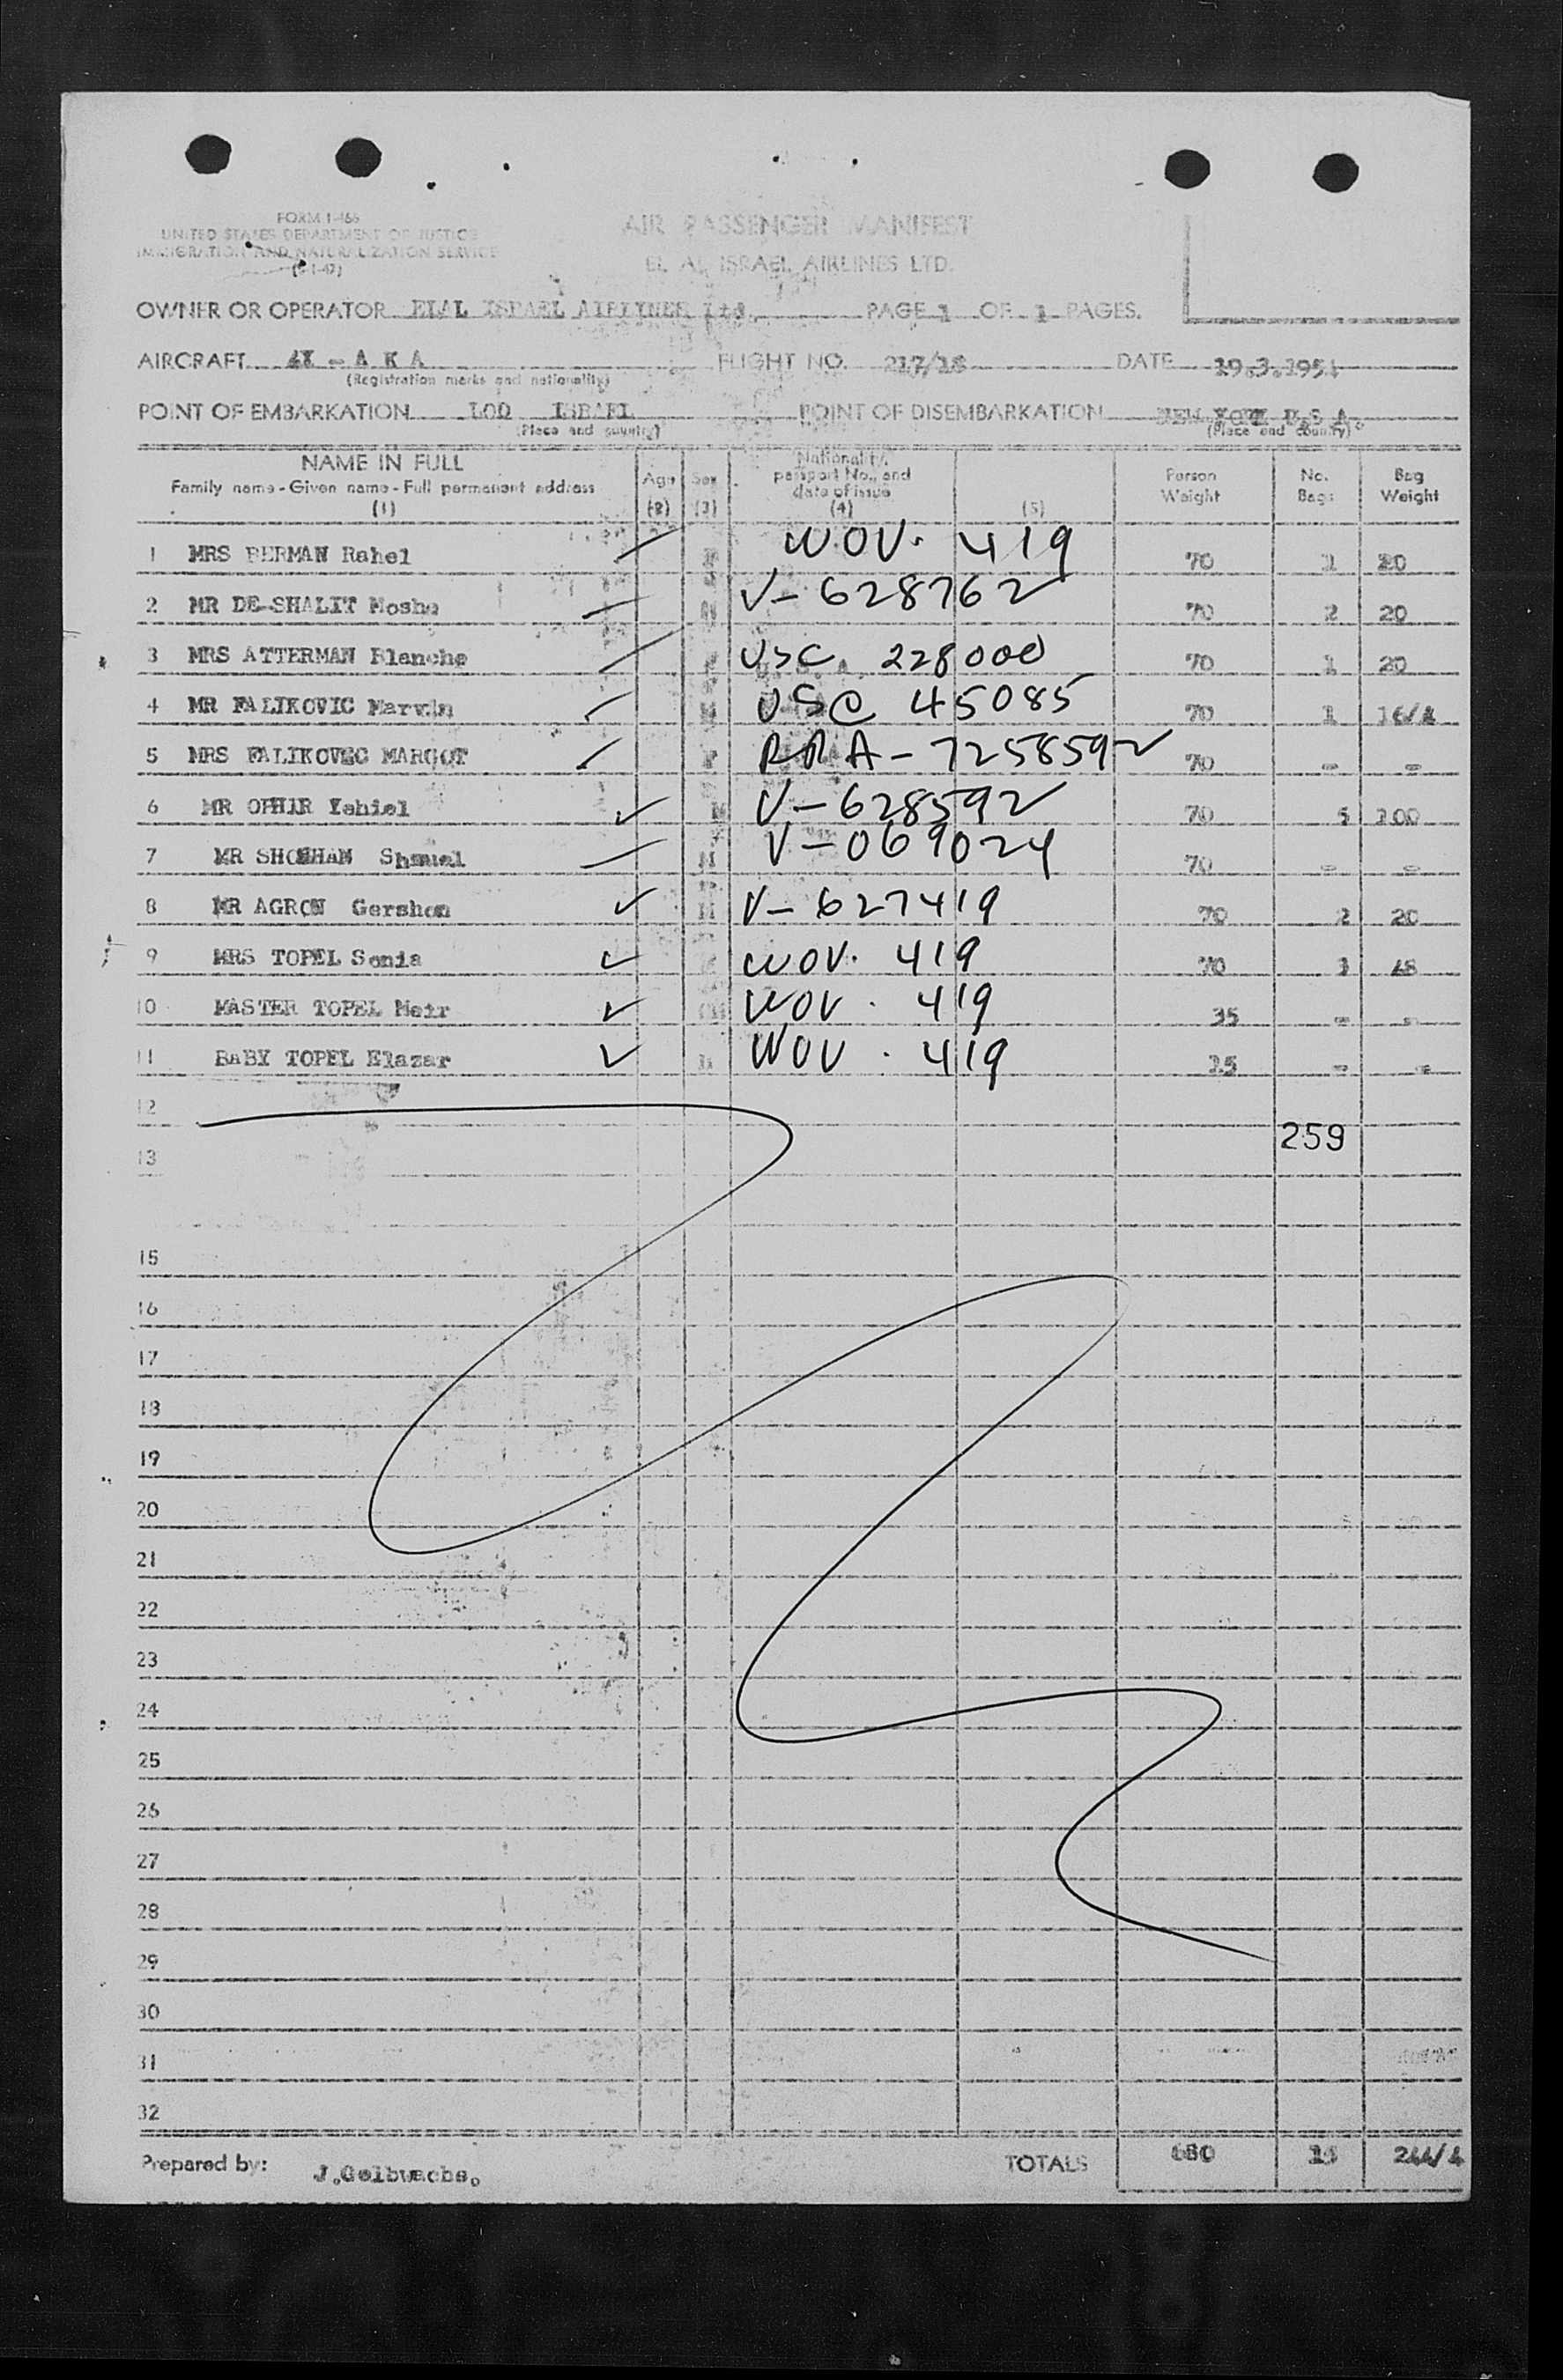 FORM I-466
UNITED STATES DEPARTMENT OF JUSTICE
IMMIGRATION AND NATURALIZATION SERVICE
AIR PASSENGER MANIFEST
EL AL ISRAEL AIRLINES LTD.
OWNER OR OPERATOR ELAL ISRAEL AIRLINES Ltd. PAGE 1 OF 1 PAGES.
AIRCRAFT 4X - A K A FLIGHT NO. 217/18 DATE 19.3.1951
(Registration marks and nationality)
POINT OF EMBARKATION LOD ISRAEL POINT OF DISEMBARKATION NEW YORK U.S.A.
(Place and country) (Place and country)
NAME IN FULL
Family name - Given name - Full permanent address
(1)
Age
(2)
Sex
(3)
Nationality,
passport No., and
date of issue
(4)
(5)
Person
Weight
No.
Bags
Bag
Weight
1 MRS BERMAN Rahel WOV. 419 70 1 20
2 MR DE-SHALIT Moshe V-628762 70 2 20
3 MRS ATTERMAN Blanche USC 228000 70 1 20
4 MR FALIKOVIC Marvin USC 45085 70 1 16/4
5 MRS FALIKOVEC MARGOT 7258592 70 - -
6 MR OPHIR Yehiel V-628592 70 5 100
7 MR SHOMHAM Shmuel V-069024 70 - -
8 MR AGRON Gershon V-627419 70 2 20
9 MRS TOPEL Sonia WOV. 419 70 48
10 MASTER TOPEL Meir WOV. 419 35 - -
11 BABY TOPEL Elazar WOV. 419 15 - -
12
259
13
15
16
17
18
19
20
21
22
23
24
25
26
27
28
29
30
31
32
Prepared by: J.Gelbwachs. TOTALS 244/4